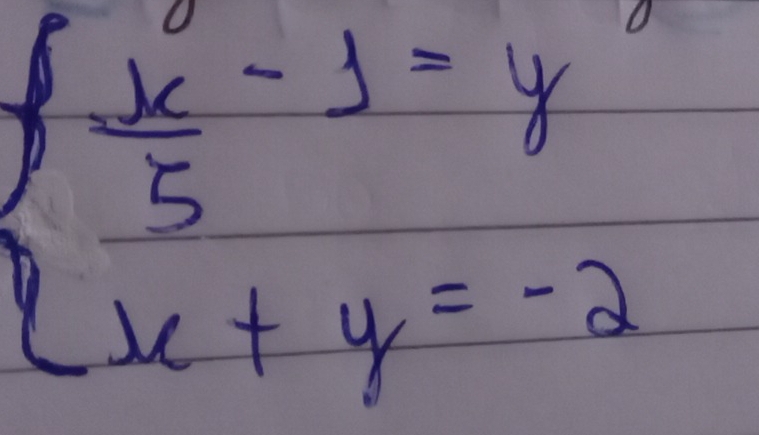 x/5 - 1 = y
x + y = -2